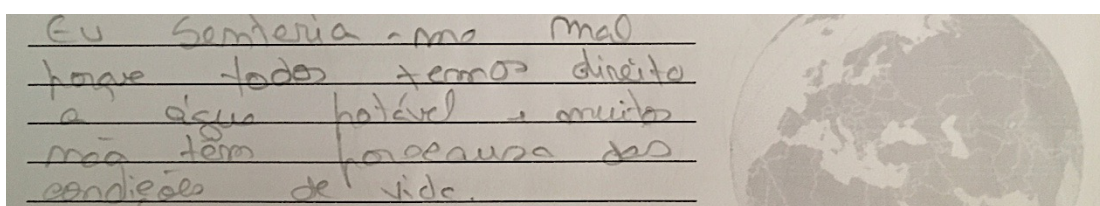 Eu Senteria-me mal
porque todos temos direito
a água potável e muitos
não têm porcausa das
condições de vida.